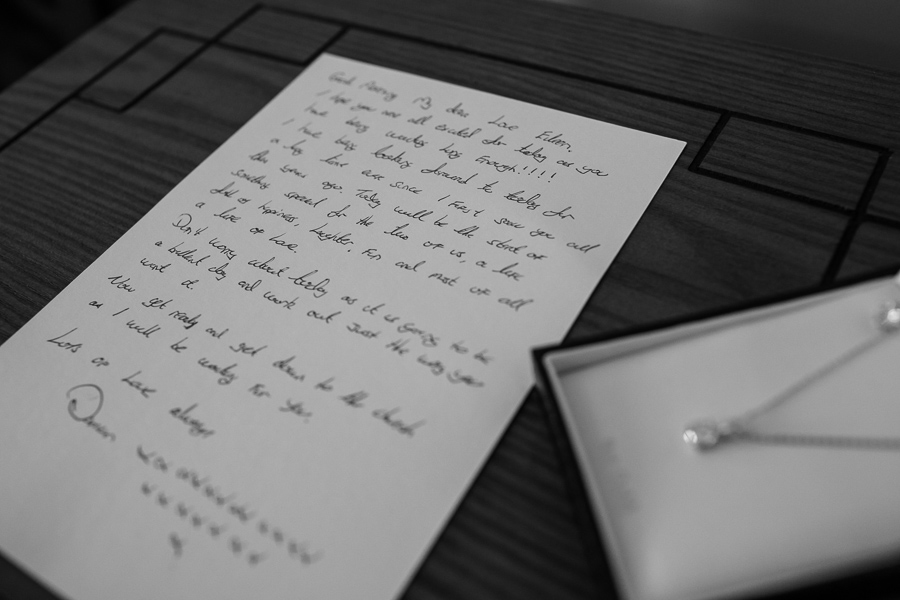 Good Morning My dear Love Eileen.
I hope you are all excited for today as you
have being waiting long Enough!!!!
I have being looking forward to today for
a long time ever since I First saw you all
them times ago. Today will be the start of
something special for the two of us, a life
full of happiness, laughter, Fun and most of all
a life of Love.
Don't worry about today as it is going to be
a brilliant day and work out Just the way you
want it.
Now get ready and get down to the church
as I will be waiting For you.
Lots of Love always
xxxxxxxxxx
xxxxxxx
x